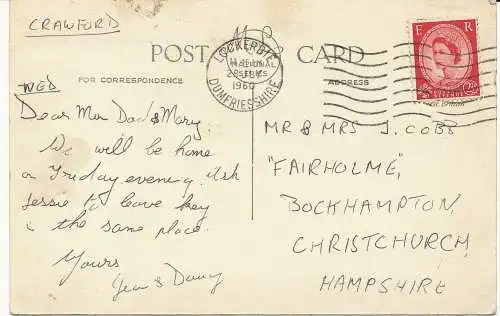 CRAWFORD
POST CARD
FOR CORRESPONDENCE
ADDRESS
LOCKERBIE
1960
DUMFRIESSHIRE
E R
WED
Dear Mum Dad & Mary.
We will be home
on Friday evening. Ask
Jessie to leave key
in the same place.
Yours
Jean & Danny
MR & MRS J. COBB
"FAIRHOLME,"
BOCKHAMPTON,
CHRISTCHURCH,
HAMPSHIRE